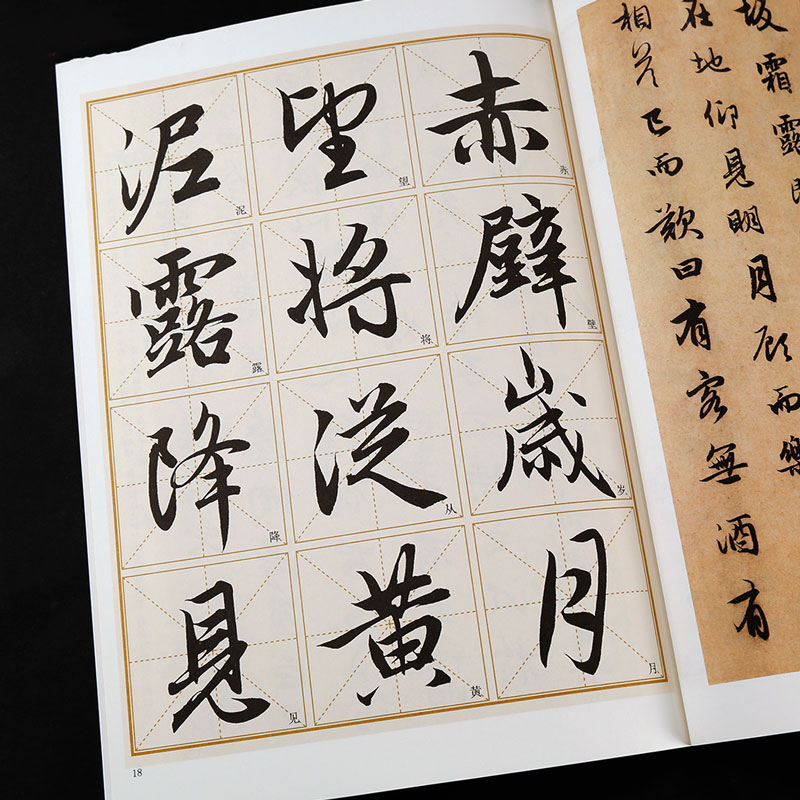 赤壁歲月
赤壁岁月
望将從黄
望将从黄
泥露降見
泥露降见
18
坂霜露既
在地仰見明月顧而樂
相答已而歎曰有客無酒有